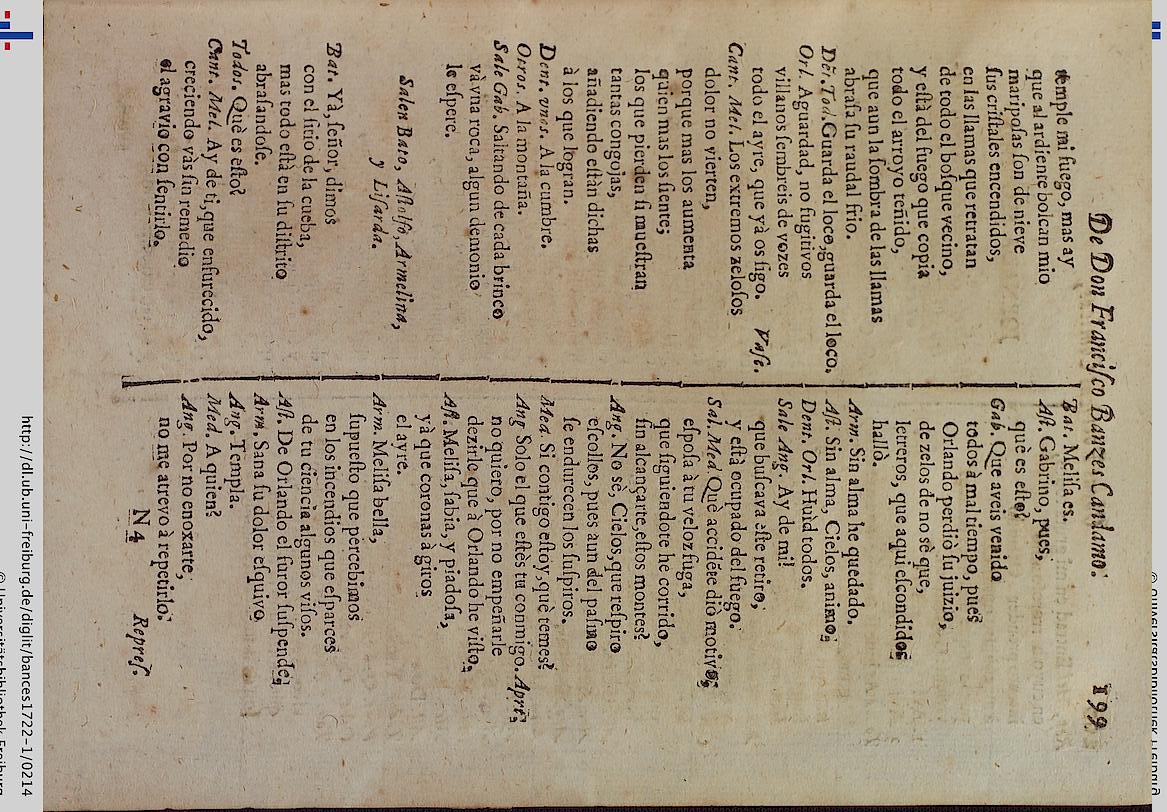 De Don Francisco Banzes Candamo. 199
temple mi fuego, mas ay
que al ardiente bolcan mio
mariposas son de nieve
sus cristales encendidos,
en las llamas que retratan
de todo el bosque vecino,
y està del fuego que copia
todo el arroyo teñido,
que aun la sombra de las llamas
abrasa su raudal frio.
Dẽt. Tod. Guarda el loco, guarda el loco.
Orl. Aguardad, no fugitivos
villanos sembreis de vozes
todo el ayre, que yà os sigo. Vase.
Cant. Mel. Los extremos zelosos
dolor no vierten,
porque mas los aumenta
quien mas los siente;
los que pierden si muestran
tantas congojas,
añadiendo estàn dichas
à los que logran.
Dent. vnos. A la cumbre.
Otros. A la montaña.
Sale Gab. Saltando de cada brinco
và vna roca, algun demonio
le espere.
Salen Bato, Astolfo, Armelina,
y Lisarda.
Bat. Yà, señor, dimos
con el sitio de la cueba,
mas todo està en su distrito
abrasandose.
Todos. Què es esto?
Cant. Mel. Ay de ti, que enfurecido,
creciendo vàs sin remedio
el agravio con sentirlo.
Bat. Melisa es.
Ast. Gabrino, pues,
què es esto?
Gab. Que aveis venido
todos à mal tiempo, pues
Orlando perdiò su juizio,
de zelos de no sè que,
letreros, que aqui escondidos
hallò.
Arm. Sin alma he quedado.
Ast. Sin alma, Cielos, animo;
Dent. Orl. Huid todos.
Sale Ang. Ay de mi!
que buscava este retiro,
y està ocupado del fuego.
Sal. Med Què accidẽte diò motivo,
esposa à tu veloz fuga,
que siguiendote he corrido,
sin alcançarte, estos montes?
Ang. No sè, Cielos, que respiro
escollos, pues aun del pasmo
se endurecen los suspiros.
Med. Si contigo estoy, què temes?
Ang Solo el que estès tu conmigo. Apart.
no quiero, por no empeñarle
dezirle que à Orlando he visto.
Ast. Melisa, sabia, y piadosa,
yà que coronas à giros
el ayre.
Arm. Melisa bella,
supuesto que percebimos
en los incendios que esparces
de tu ciencia algunos visos.
Ast. De Orlando el furor suspende;
Arm. Sana su dolor esquivo.
Ang. Templa.
Med. A quien?
Ang. Por no enoxarte,
no me atrevo à repetirlo.
N 4 Repres.
http://dl.ub.uni-freiburg.de/diglit/bances1722-1/0214
© Universitätsbibliothek Freiburg